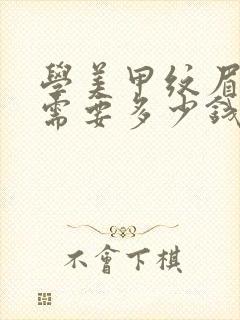 學美甲紋眉
需要多少錢
不會下棋